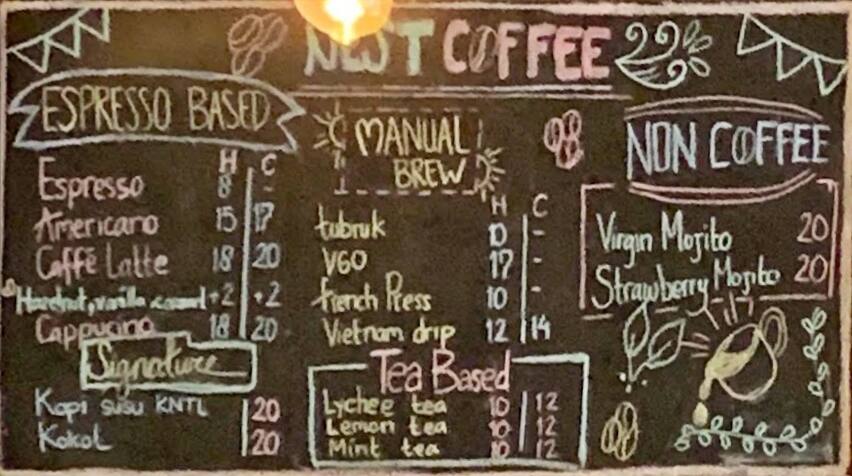 NEST COFFEE
ESPRESSO BASED
H C
Espresso 8 -
Americano 15 17
Caffé Latte 18 20
Hazelnut, vanilla, caramel +2 +2
Cappucino 18 20
Signature
Kopi susu KNTL 20
Kokol 20
MANUAL
BREW
H C
tubruk 10 -
V60 17 -
french Press 10 -
Vietnam drip 12 14
Tea Based
Lychee tea 10 12
Lemon tea 10 12
Mint tea 10 12
NON COFFEE
Virgin Mojito 20
Strawberry Mojito 20